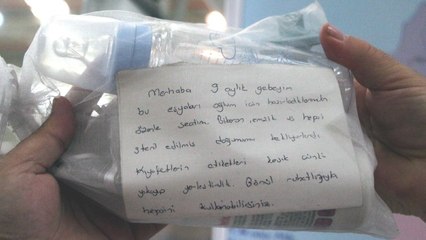 Merhaba 9 aylık gebeyim
bu eşyaları oğlum için hazırlatılmıştı
Özenle seçtim. Biberon, emzik vs hepsi
steril edilmiş doğumunu bekliyorduk
Kıyafetlerin etiketleri kesik çünkü
yıkayıp yerleştirdik. Gönül rahatlığıyla
hepsini kullanabilirsiniz.